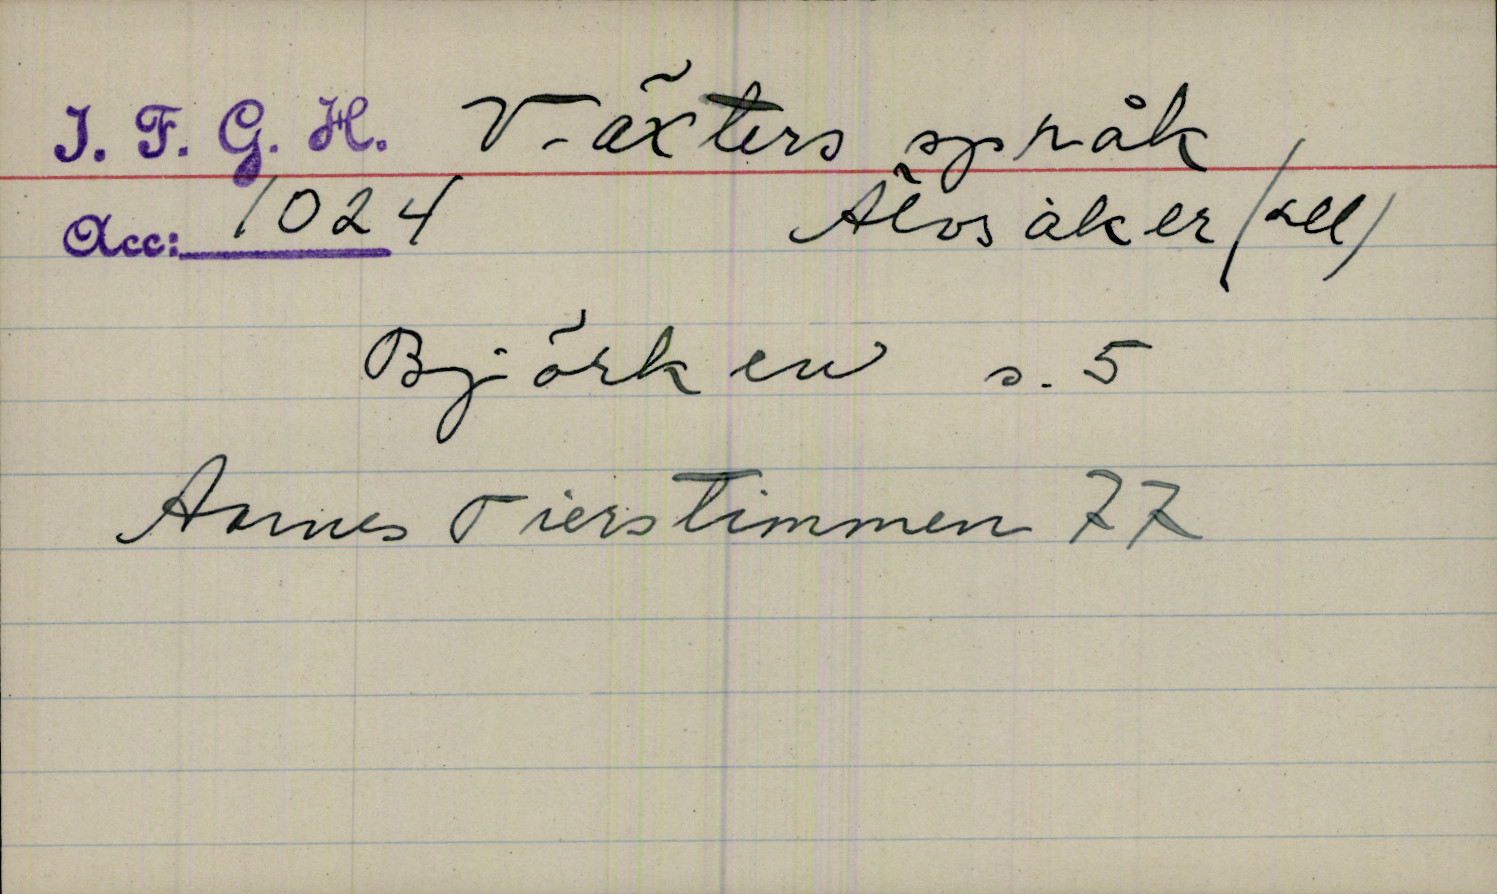 I. F. G. H. Växters språk
Acc: 1024 Älvsåker (Hll)
Björken s. 5
Aarnes Tierstimmen 77